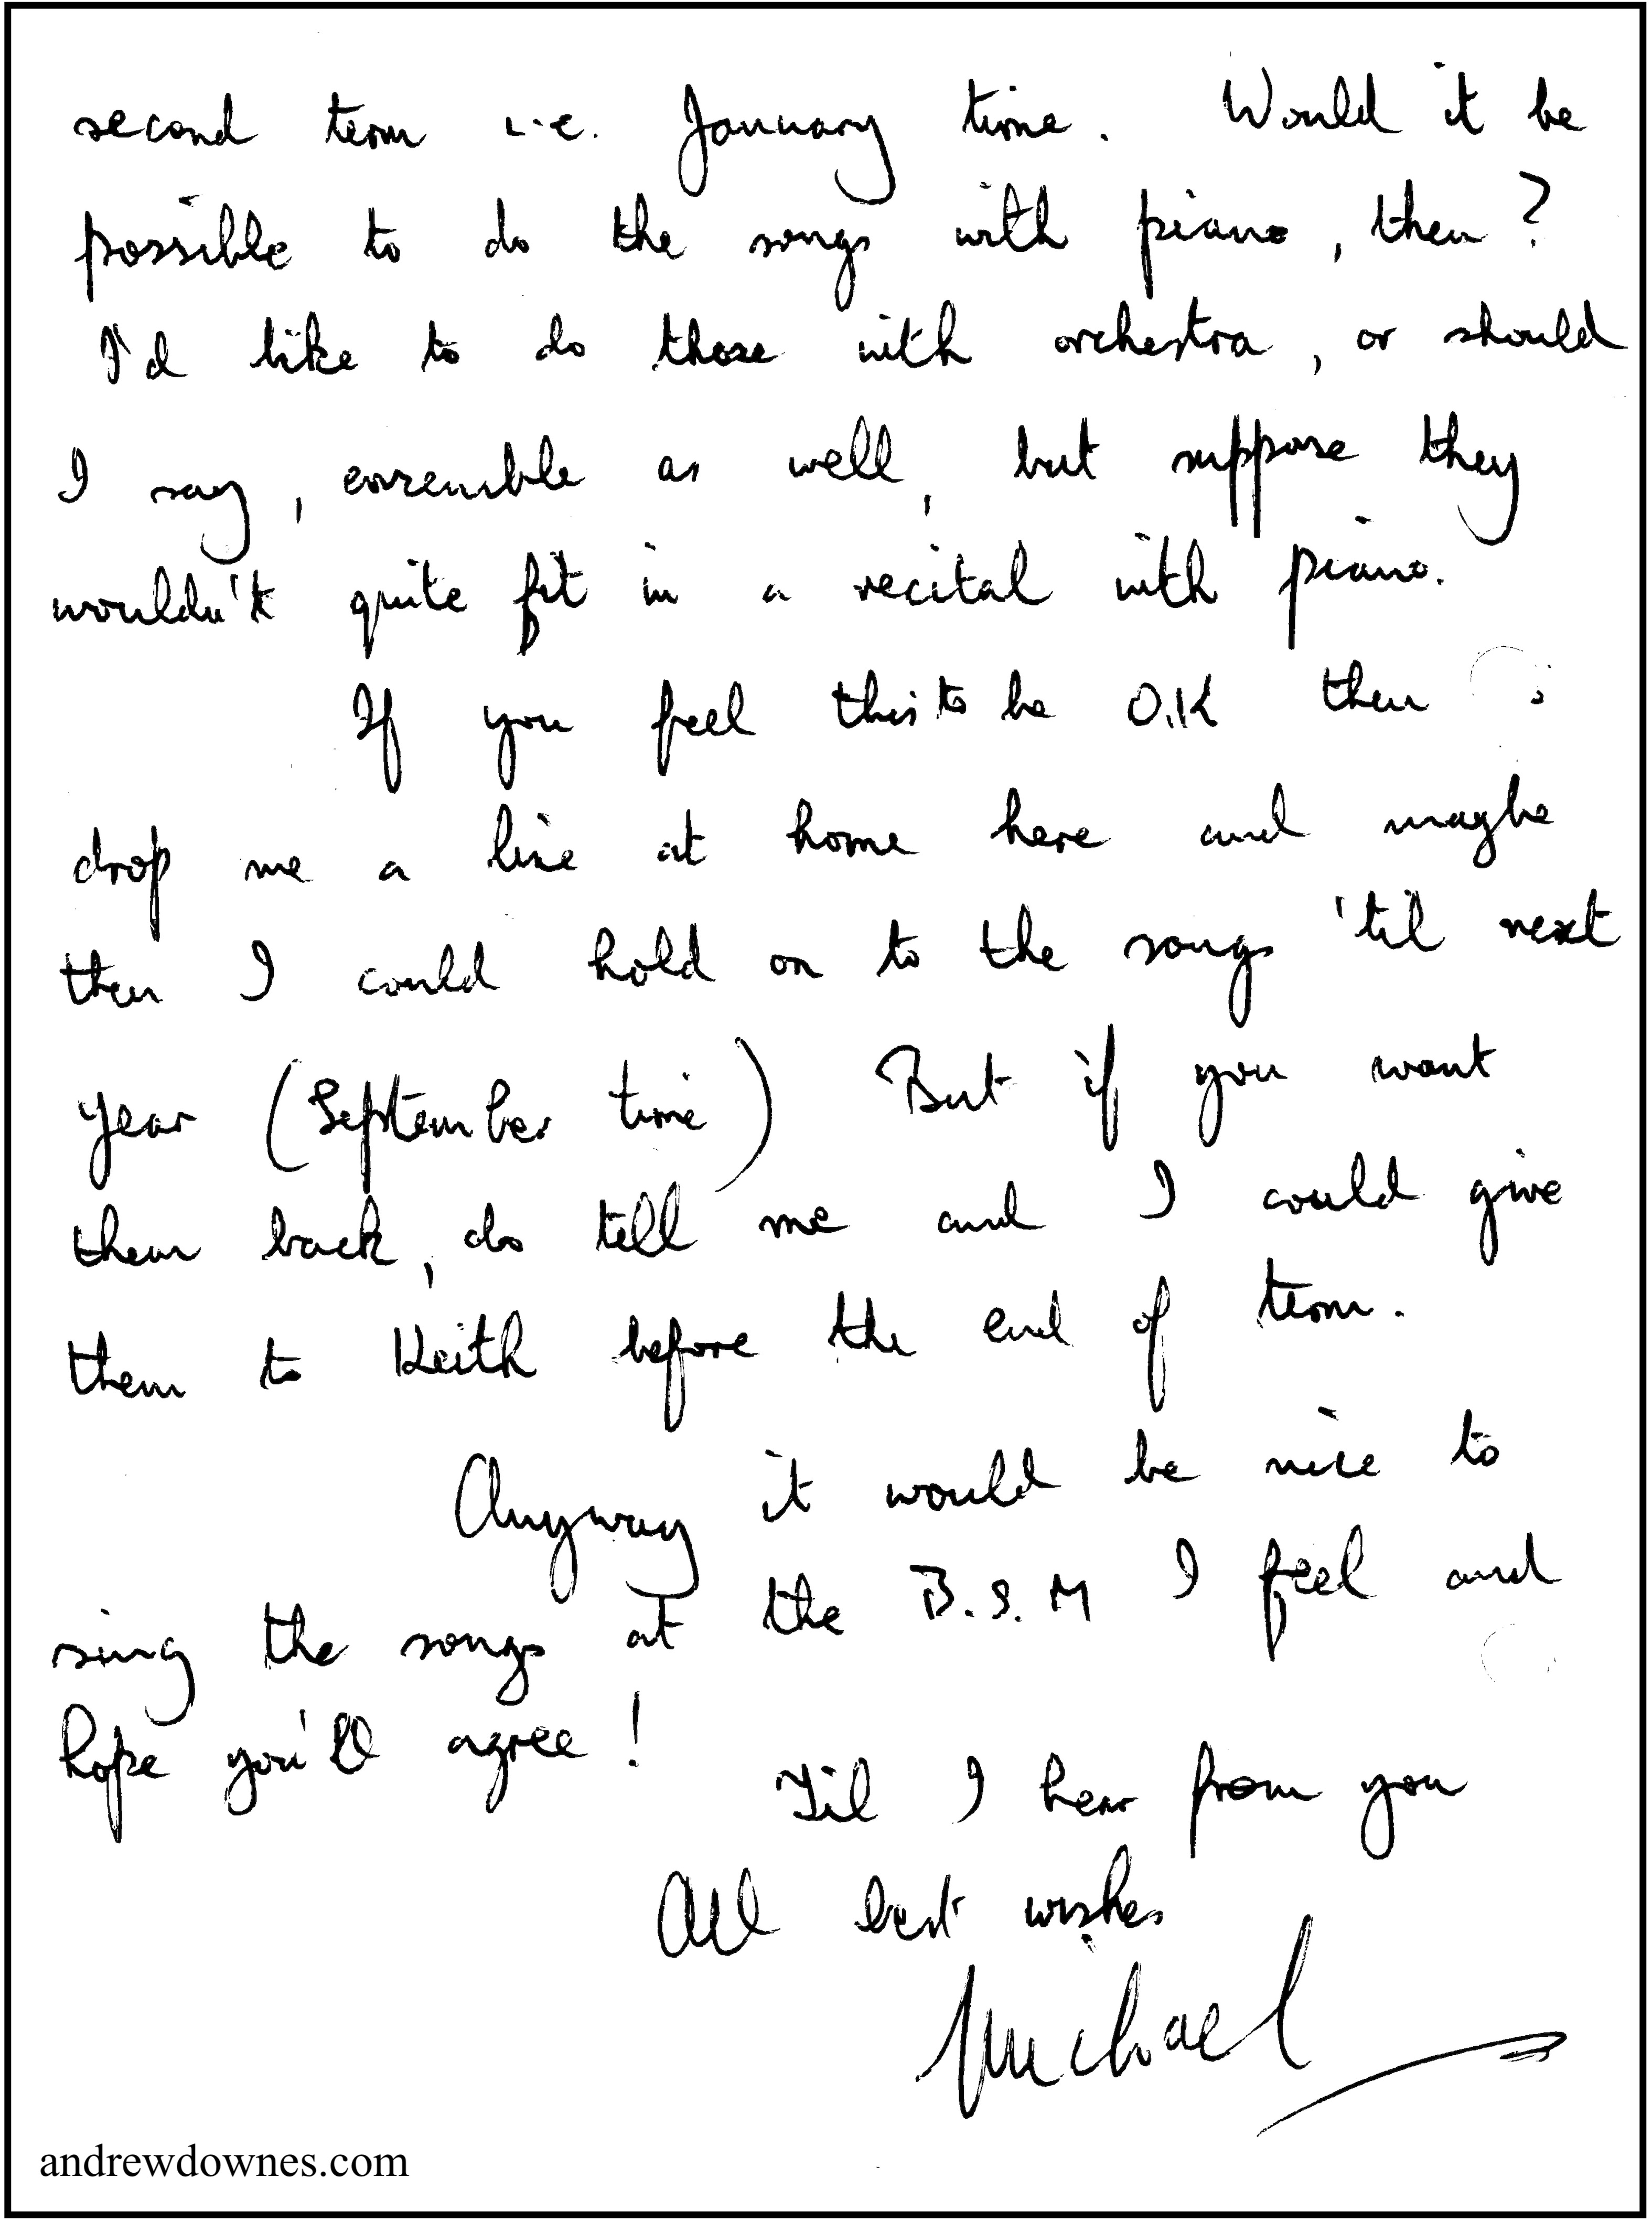 second term i.e. January time. Would it be
possible to do the songs with piano, then?
I'd like to do those with orchestra, or should
I say, ensemble as well, but suppose they
wouldn't quite fit in a recital with piano.
If you feel this to be O.K then
drop me a line at home here and maybe
then I could hold on to the songs 'til next
year (September time) But if you want
them back, do tell me and I could give
them to Keith before the end of term.
Anyway it would be nice to
sing the songs at the B.S.M I feel and
hope you'll agree!
Til I hear from you
All best wishes
Michael
andrewdownes.com